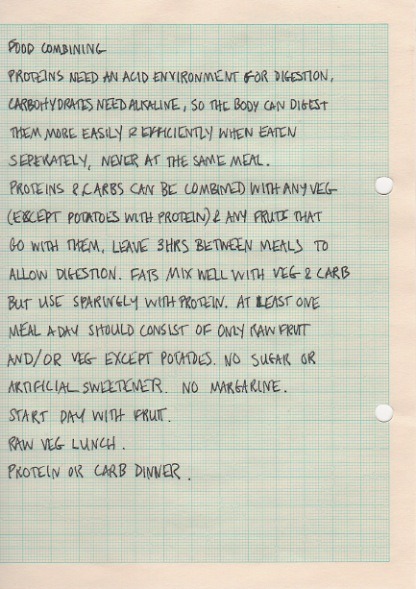 FOOD COMBINING
PROTEINS NEED AN ACID ENVIRONMENT FOR DIGESTION,
CARBOHYDRATES NEED ALKALINE, SO THE BODY CAN DIGEST
THEM MORE EASILY & EFFICIENTLY WHEN EATEN
SEPERATELY, NEVER AT THE SAME MEAL.
PROTEINS & CARBS CAN BE COMBINED WITH ANY VEG
(EXCEPT POTATOES WITH PROTEIN) & ANY FRUIT THAT
GO WITH THEM, LEAVE 3HRS BETWEEN MEALS TO
ALLOW DIGESTION. FATS MIX WELL WITH VEG & CARB
BUT USE SPARINGLY WITH PROTEIN. AT LEAST ONE
MEAL A DAY SHOULD CONSIST OF ONLY RAW FRUIT
AND/OR VEG EXCEPT POTATOES. NO SUGAR OR
ARTIFICIAL SWEETENER. NO MARGARINE.
START DAY WITH FRUIT.
RAW VEG LUNCH.
PROTEIN OR CARB DINNER.